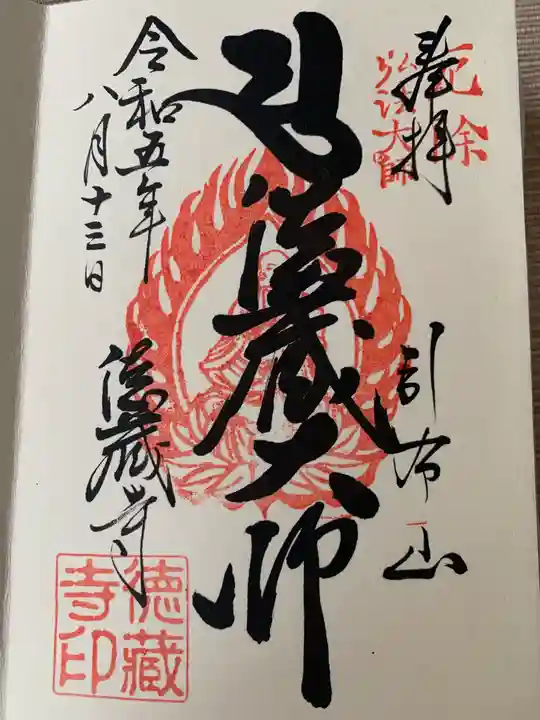 奉拝
厄除
弘法大師
引布山
徳蔵大師
令和五年
八月十三日
徳蔵寺
徳藏
寺印